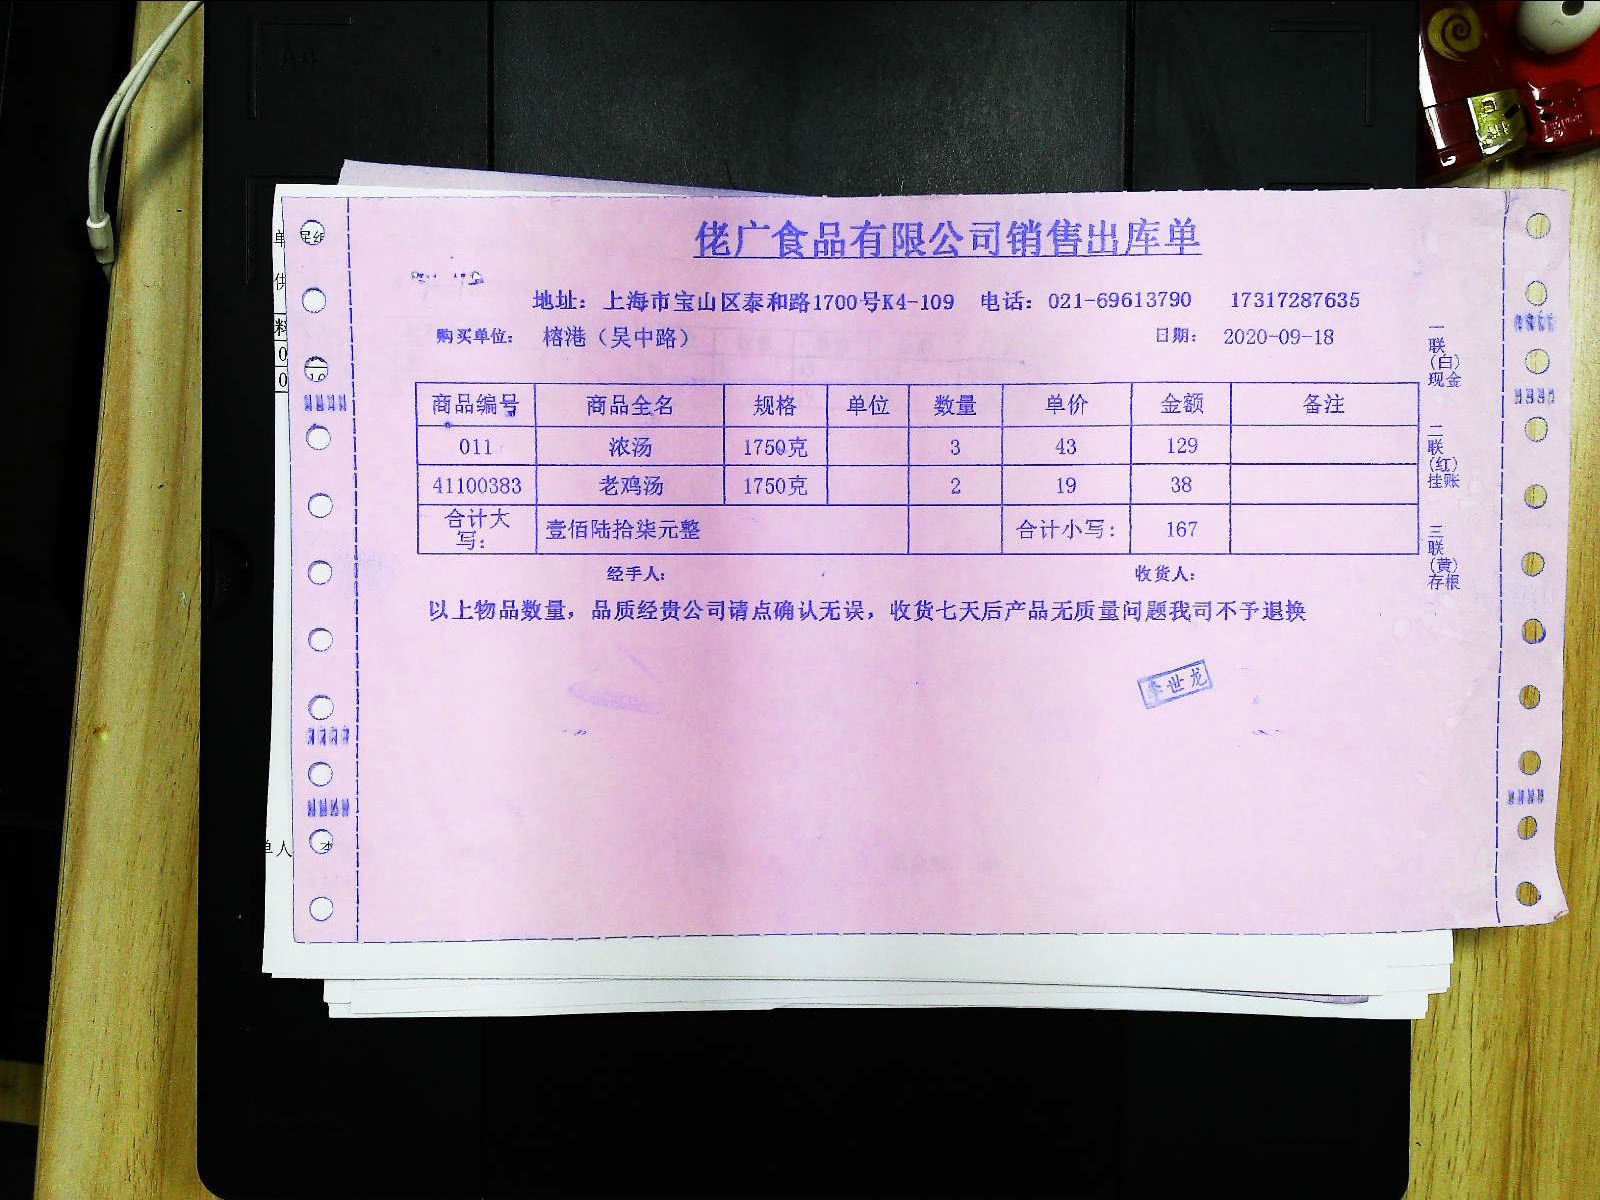 佬广食品有限公司销售出库单
地址：上海市宝山区泰和路1700号K4-109 电话：021-69613790 17317287635
购买单位： 榕港（吴中路） 日期： 2020-09-18
商品编号 商品全名 规格 单位 数量 单价 金额 备注
011 浓汤 1750克 3 43 129
41100383 老鸡汤 1750克 2 19 38
合计大写： 壹佰陆拾柒元整 合计小写： 167
经手人： 收货人：
以上物品数量，品质经贵公司请点确认无误，收货七天后产品无质量问题我司不予退换
李世龙
一联（白）现金
二联（红）挂账
三联（黄）存根
A4
单
供
料
0
0
单人